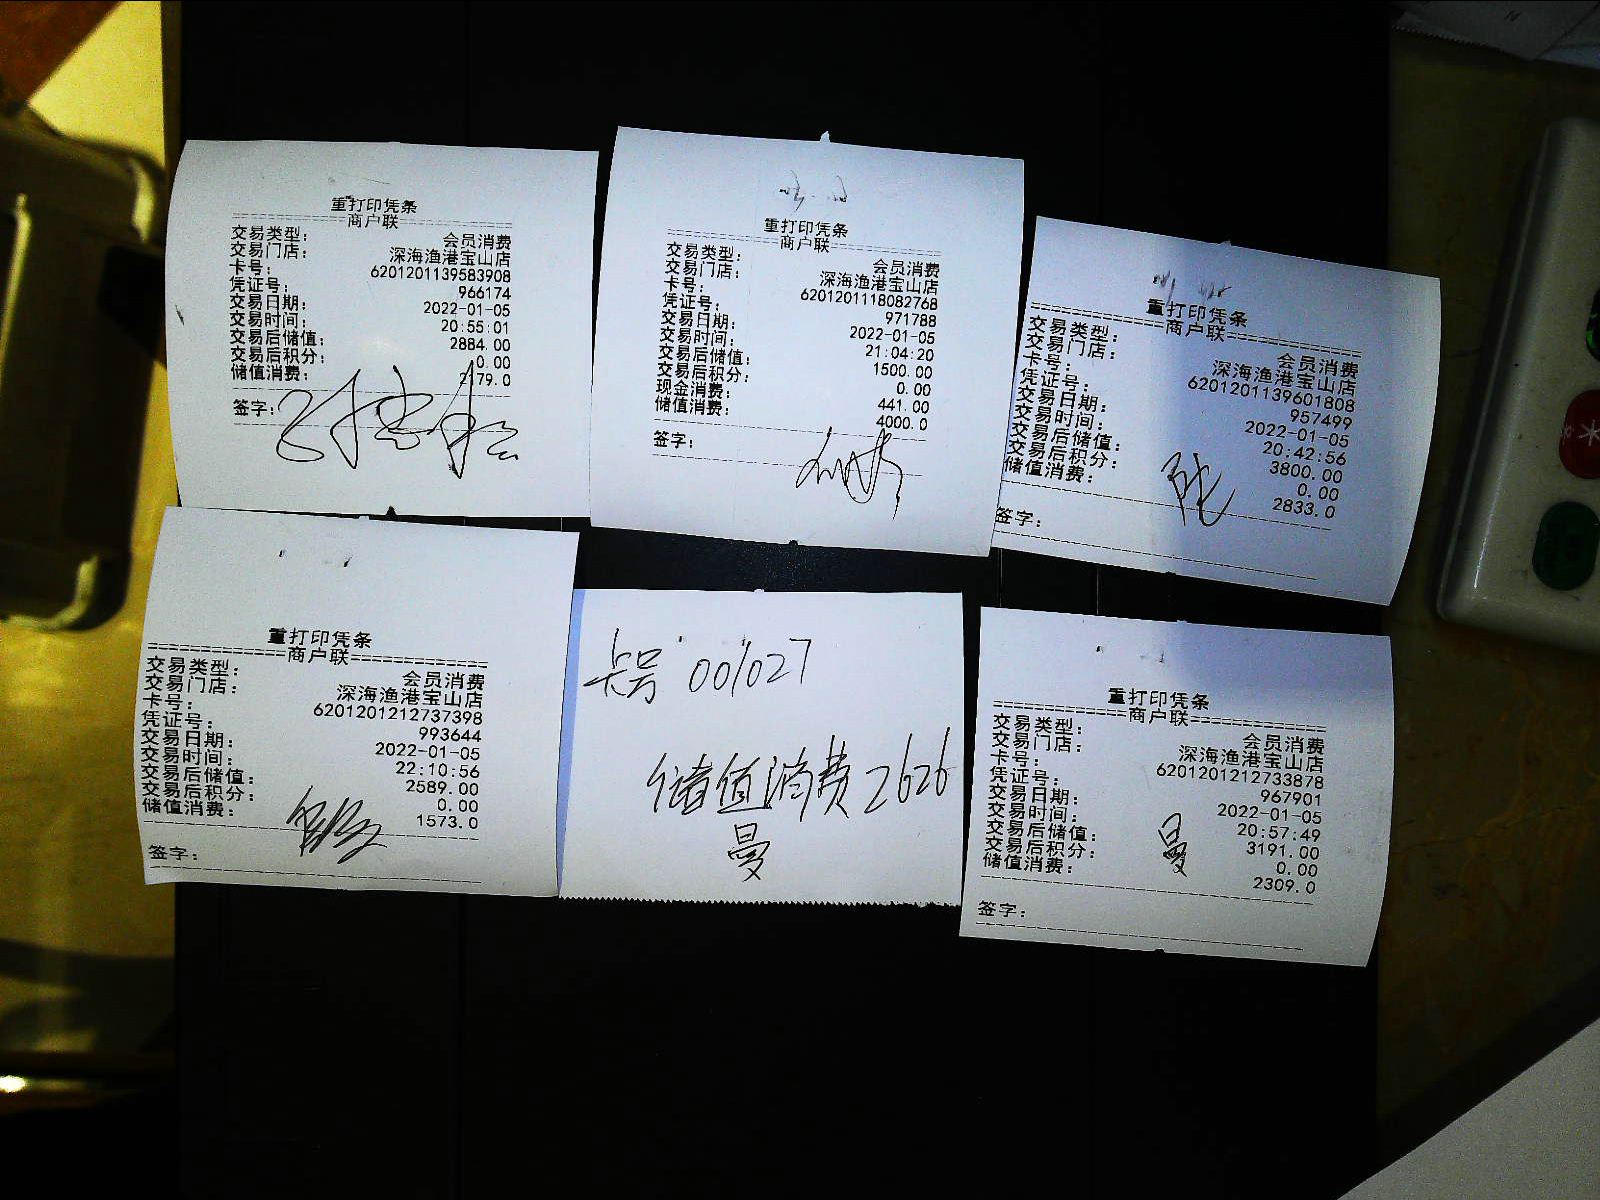 重打印凭条
==========商户联==========
交易类型: 会员消费
交易门店: 深海渔港宝山店
卡号: 6201201139583908
凭证号: 966174
交易日期: 2022-01-05
交易时间: 20:55:01
交易后储值: 2884.00
交易后积分: 0.00
储值消费: 2179.0
签字:
重打印凭条
==========商户联==========
交易类型: 会员消费
交易门店: 深海渔港宝山店
卡号: 6201201118082768
凭证号: 971788
交易日期: 2022-01-05
交易时间: 21:04:20
交易后储值: 1500.00
交易后积分: 0.00
现金消费: 441.00
储值消费: 4000.0
签字:
重打印凭条
==========商户联==========
交易类型: 会员消费
交易门店: 深海渔港宝山店
卡号: 6201201139601808
凭证号: 957499
交易日期: 2022-01-05
交易时间: 20:42:56
交易后储值: 3800.00
交易后积分: 0.00
储值消费: 2833.0
签字:
重打印凭条
==========商户联==========
交易类型: 会员消费
交易门店: 深海渔港宝山店
卡号: 6201201212737398
凭证号: 993644
交易日期: 2022-01-05
交易时间: 22:10:56
交易后储值: 2589.00
交易后积分: 0.00
储值消费: 1573.0
签字:
卡号 001027
储值消费2626
曼
重打印凭条
==========商户联==========
交易类型: 会员消费
交易门店: 深海渔港宝山店
卡号: 6201201212733878
凭证号: 967901
交易日期: 2022-01-05
交易时间: 20:57:49
交易后储值: 3191.00
交易后积分: 0.00
储值消费: 2309.0
曼
签字: